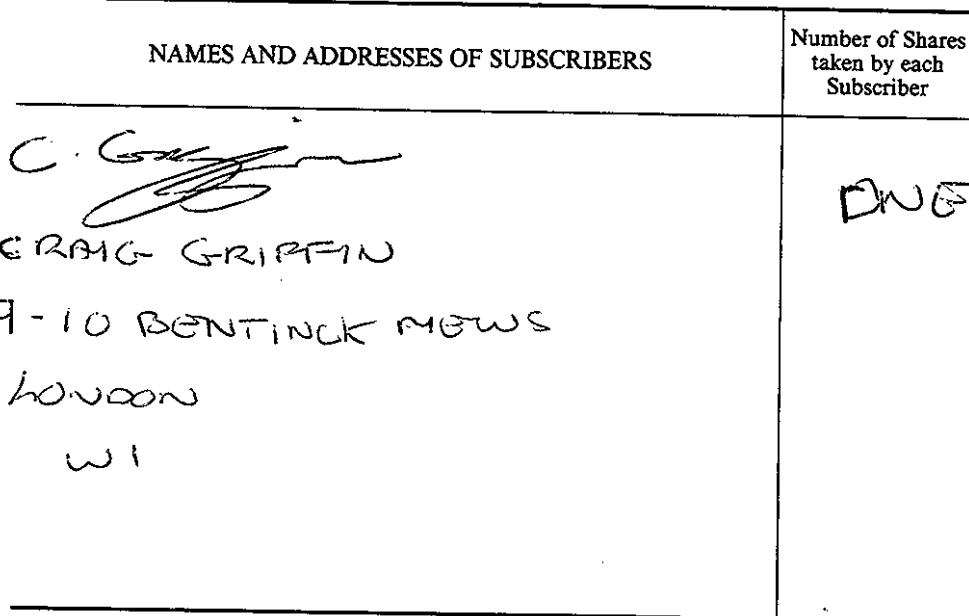 NAMES AND ADDRESSES OF SUBSCRIBERS
Number of Shares
taken by each
Subscriber
C. Griffin
ONE
CRAIG GRIFFIN
9-10 BENTINCK MEWS
LONDON
W1